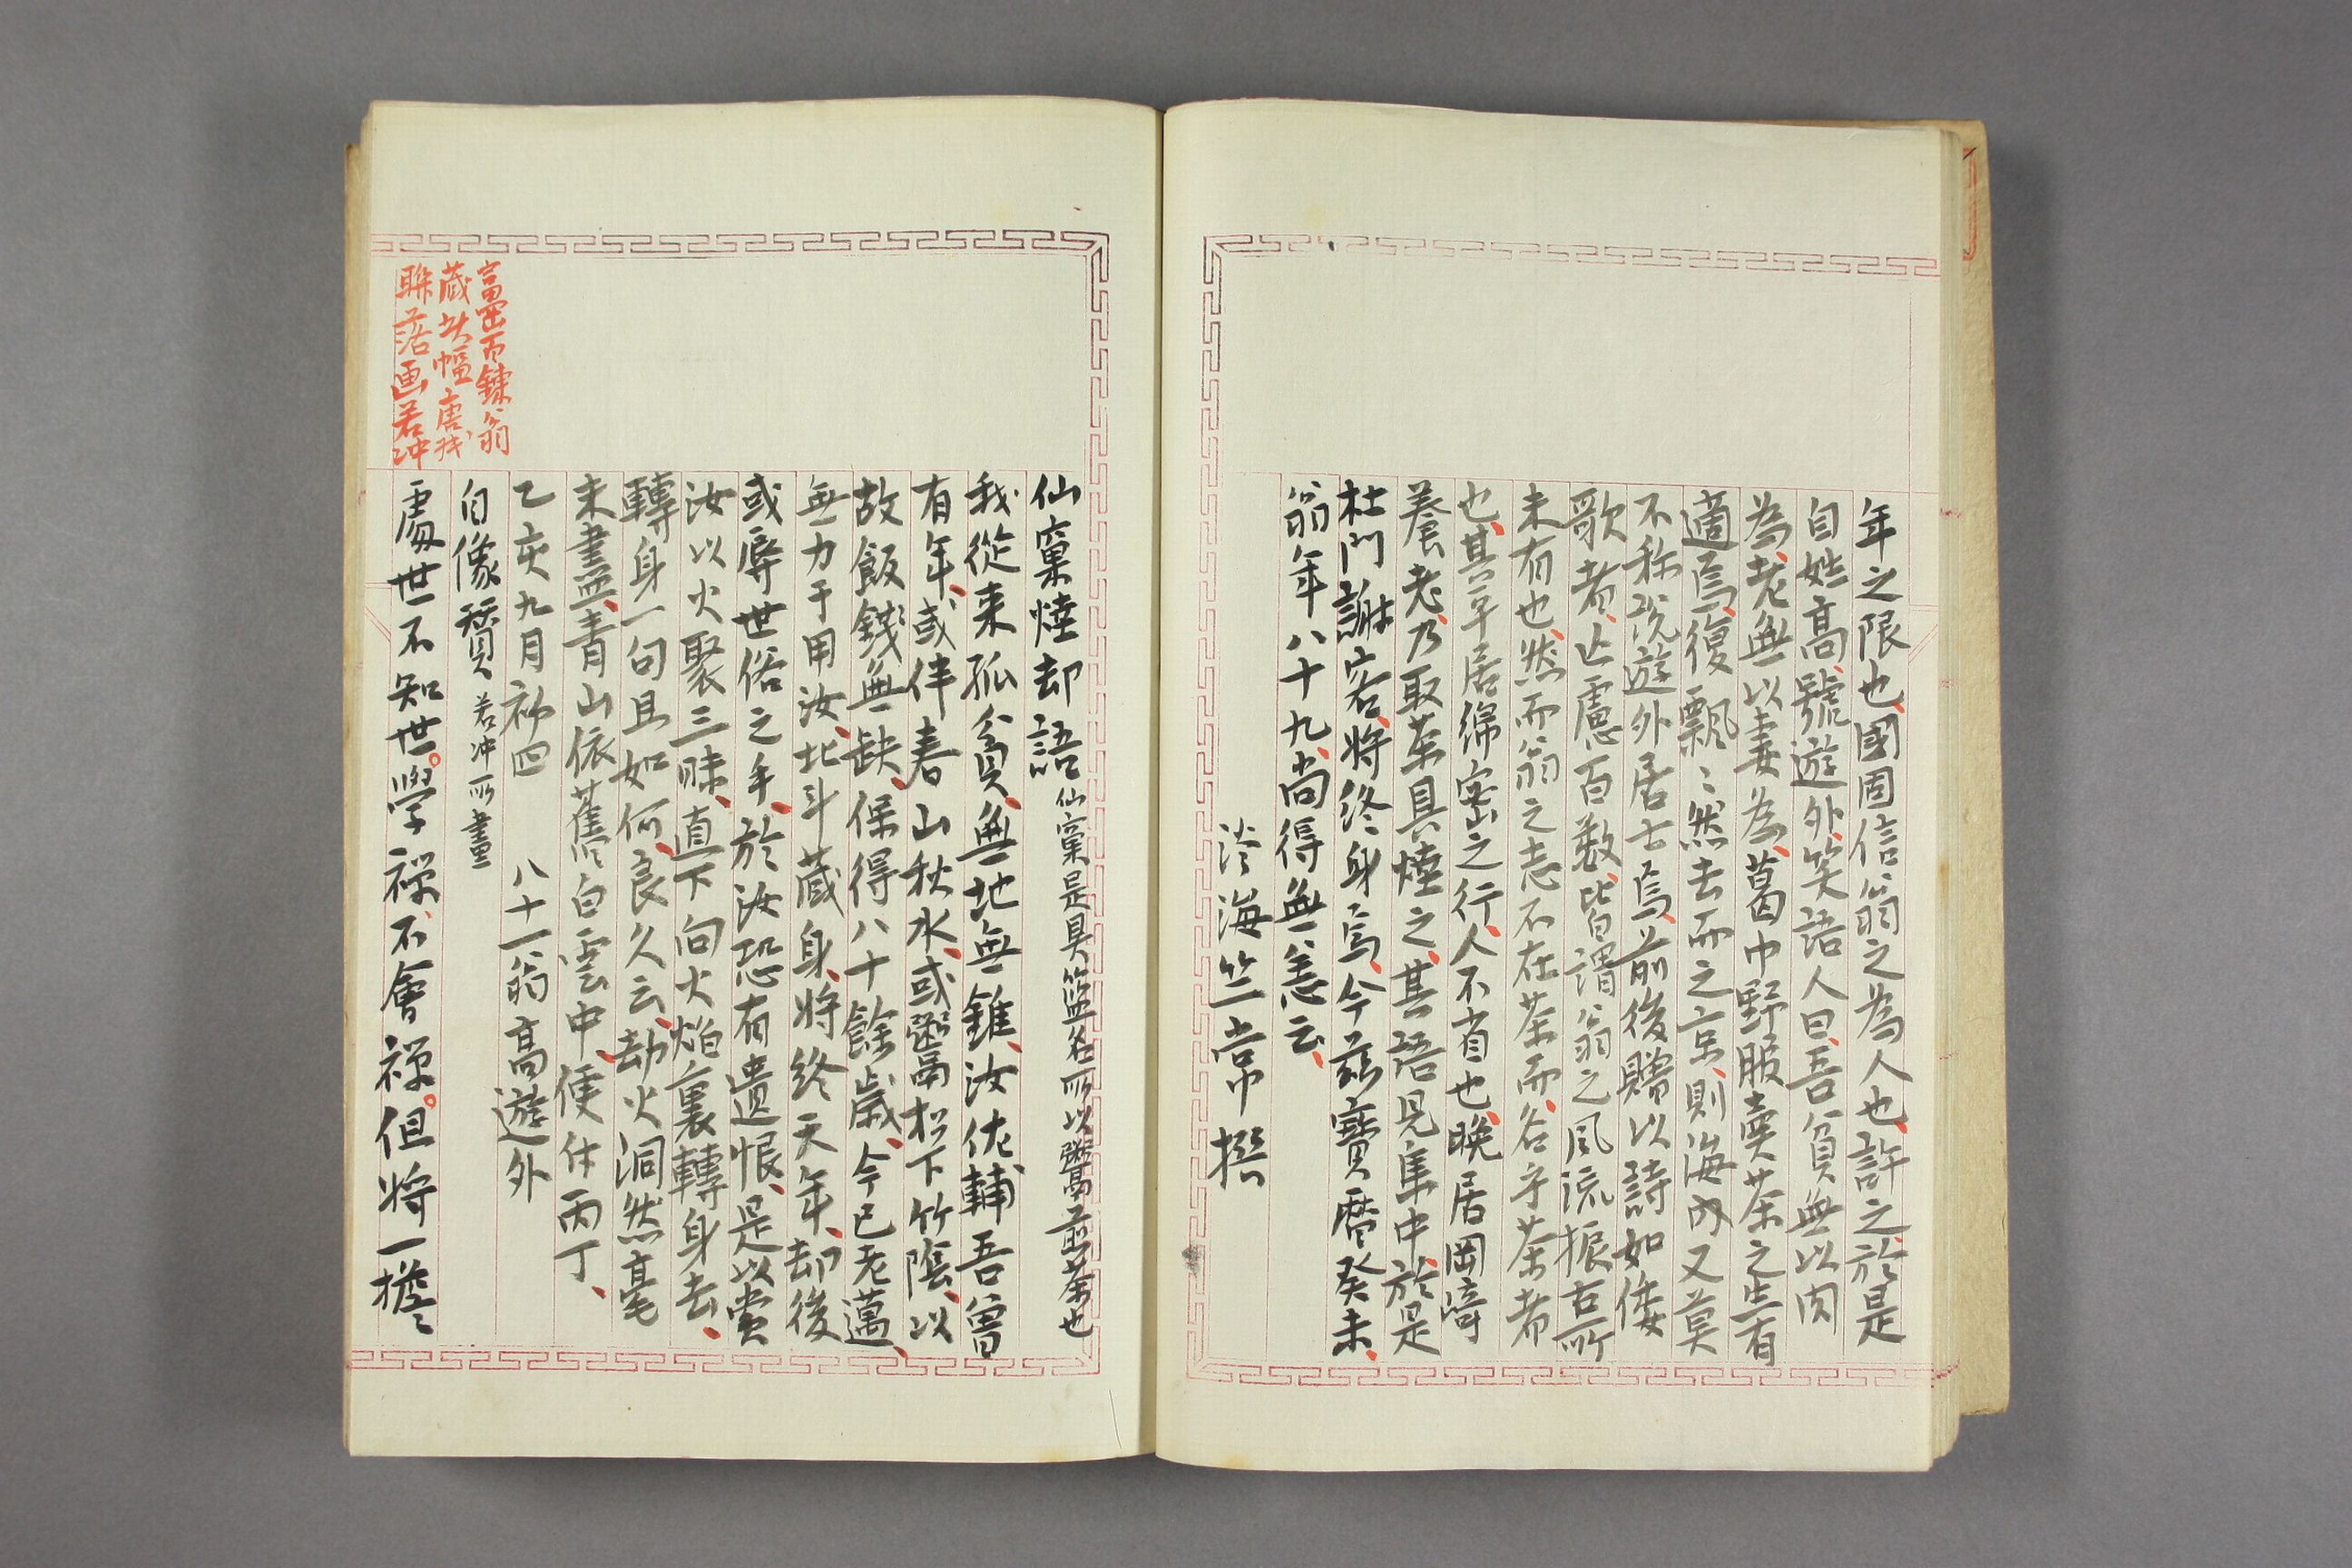 年之限也、國固信翁之為人也、許之、於是
自姓高、號遊外、笑語人曰、吾貧無以肉
為、老無以妻為、葛巾野服賣茶之生有
適焉、復飄〻然去而之京、則海内又莫
不称説遊外居士焉、前後贈以詩如倭
歌者、亡慮百数、皆謂翁之風流振古所
未有也、然而翁之志不在茶而、名乎茶者
也、其平居綿密之行、人不省也、晚居岡崎
養老、乃取茶具燒之、其語見集中、於是
杜門謝客、將終身焉、今茲寶曆癸未、
翁年八十九、尚得無恙云、
淡海竺常撰
仙窠燒却語 仙窠是具籃名所以鬻煎茶也
我從来孤貧、無地無錐、汝佐輔吾曾
有年、或伴春山秋水、或鬻松下竹陰、以
故飯錢無缺、保得八十餘歲、今已老邁、
無力于用汝、北斗藏身、將終天年、却後
或辱世俗之手、於汝恐有遺恨、是以賞
汝以火聚三昧、直下向火焰裏轉身去、
轉身一句且如何、良久云、劫火洞然毫
末盡、青山依舊白雲中、便付丙丁、
乙亥九月初四 八十一翁高遊外
自像賛 若冲所畫
富岡百錬翁
藏此幅唐玳
聯落画若冲
處世不知世。學禪、不會禪。但將一擔〻